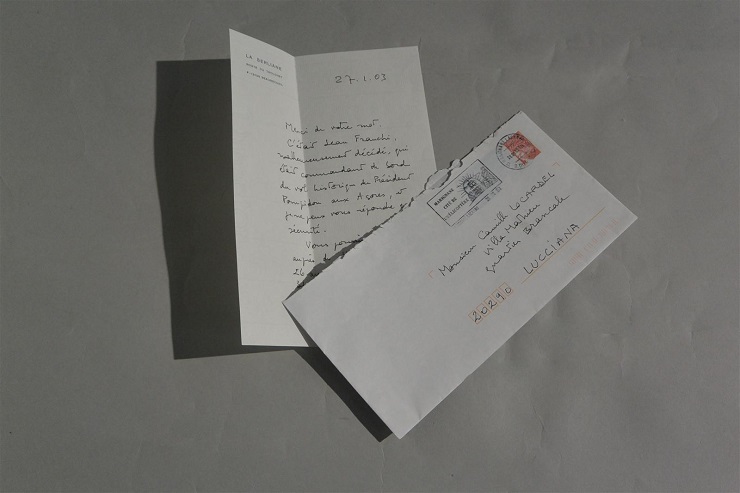 LA BERLIANE
27.1.03
Merci de votre mot.
C'était Jean Franchi,
malheureusement décédé, qui
était commandant de bord
du vol historique du Président
Pompidou aux Açores, et
je ne peux vous répondre
sécurité.
Vous pouvez
auprès
26
MARIGNANE
CITÉ DE
L'HÉLICOPTÈRE
Monsieur Camille LOCARDEL
Villa Mathieu
quartier Brancale
20290 LUCCIANA